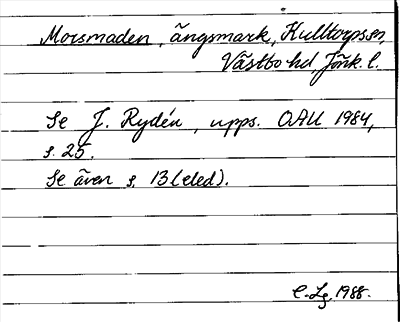 Morsmaden, ängsmark, Kulltorps sn,
Västbo hd, Jönk. l.
Se J. Rydén, upps. OAU 1984,
s. 25.
Se även s. 13 (eled).
C. Lg, 1988.